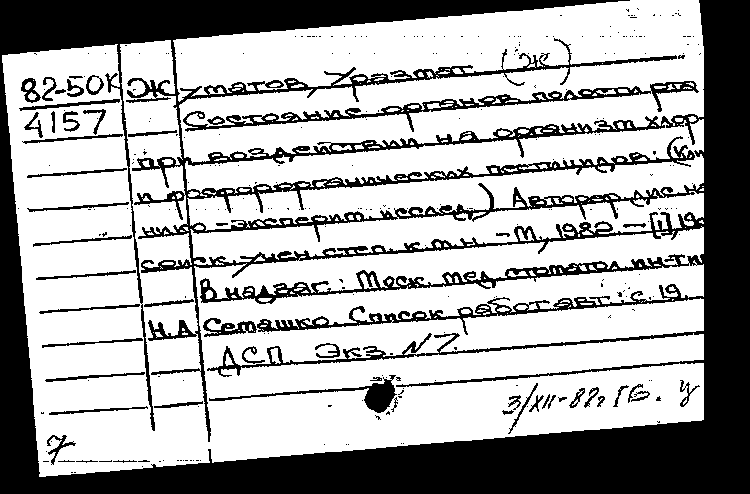 82-50К Жуматов, Уразмат (Ж)
4157 Состояние органов полости рта
при воздействии на организм хлор-
и фосфорорганических пестицидов: (Кли
нико-эксперим. исслед.) Автореф. дис. на
соиск. учен. степ. к.м.н. - М., 1980. - [1], 19с
В надзаг.: Моск. мед. стоматол. ин-т им
Н.А. Семашко. Список работ авт.: с. 19.
ДСП. Экз. N 7.
3/XII-82г
7